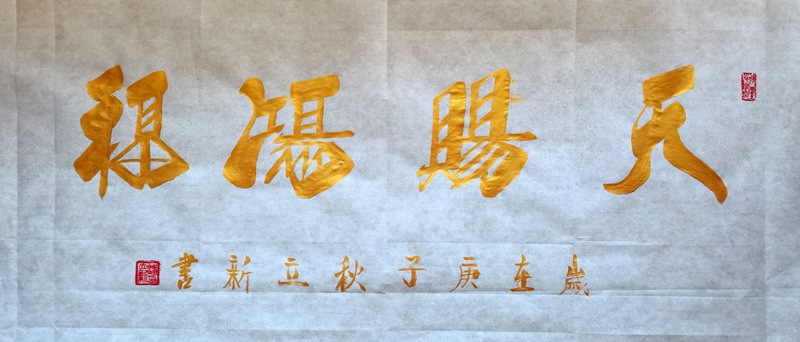 天賜鴻福
歲在庚子秋立新書